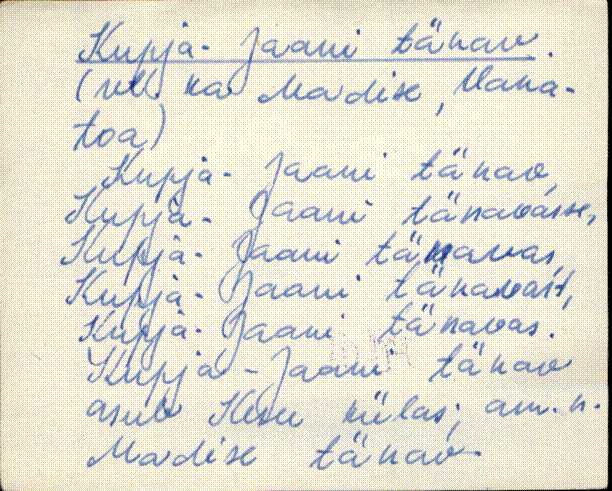 Kupja-Jaani tänav.
(vt. ka Madise, Vana-
toa)
Kupja-Jaani tänav,
Kupja-Jaani tänavasse,
Kupja-Jaani tänavas,
Kupja-Jaani tänavast,
Kupja-Jaani tänavas.
Kupja-Jaani tänav
asub Kesu külas, am. n.
Madise tänav.